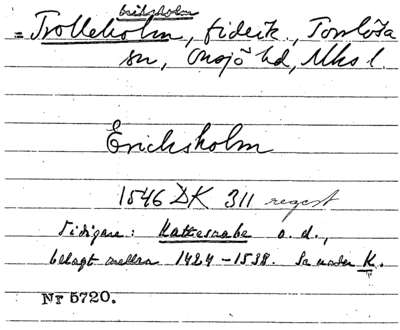 Eriksholm
= Trolleholm, fideik., Torrlösa
sn, Onsjö hd, Mhs l.
Ericksholm
1546 DK 311 regest
Tidigare: Kattesnabe o. d.,
belagt mellan 1424-1538. Se under K.
Nr 5720.